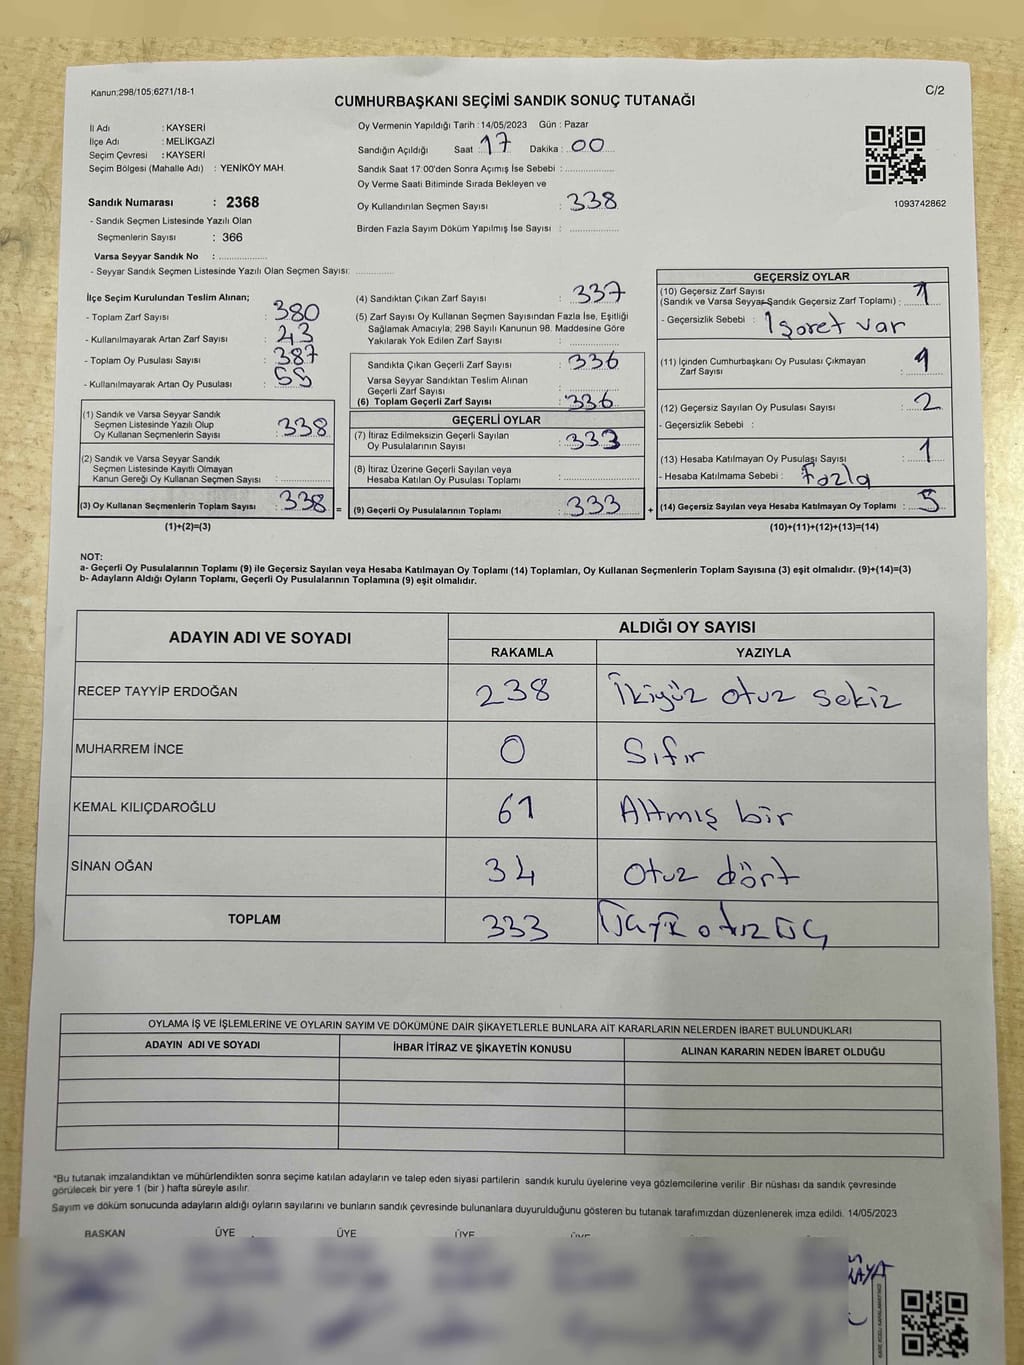 Kanun;298/105;6271/18-1
C/2
CUMHURBAŞKANI SEÇİMİ SANDIK SONUÇ TUTANAĞI
İl Adı : KAYSERİ
İlçe Adı : MELİKGAZİ
Seçim Çevresi : KAYSERİ
Seçim Bölgesi (Mahalle Adı) : YENİKÖY MAH.
Sandık Numarası : 2368
- Sandık Seçmen Listesinde Yazılı Olan
Seçmenlerin Sayısı : 366
Varsa Seyyar Sandık No :
- Seyyar Sandık Seçmen Listesinde Yazılı Olan Seçmen Sayısı:
Oy Vermenin Yapıldığı Tarih : 14/05/2023 Gün : Pazar
Sandığın Açıldığı Saat : 17 Dakika : 00
Sandık Saat 17:00'den Sonra Açımış İse Sebebi :
Oy Verme Saati Bitiminde Sırada Bekleyen ve
Oy Kullandırılan Seçmen Sayısı : 338
Birden Fazla Sayım Döküm Yapılmış İse Sayısı :
1093742862
İlçe Seçim Kurulundan Teslim Alınan;
- Toplam Zarf Sayısı : 380
- Kullanılmayarak Artan Zarf Sayısı : 43
- Toplam Oy Pusulası Sayısı : 387
- Kullanılmayarak Artan Oy Pusulası :
(1) Sandık ve Varsa Seyyar Sandık
Seçmen Listesinde Yazılı Olup
Oy Kullanan Seçmenlerin Sayısı : 338
(2) Sandık ve Varsa Seyyar Sandık
Seçmen Listesinde Kayıtlı Olmayan
Kanun Gereği Oy Kullanan Seçmen Sayısı :
(3) Oy Kullanan Seçmenlerin Toplam Sayısı : 338
=
(1)+(2)=(3)
(4) Sandıktan Çıkan Zarf Sayısı : 337
(5) Zarf Sayısı Oy Kullanan Seçmen Sayısından Fazla İse, Eşitliği
Sağlamak Amacıyla; 298 Sayılı Kanunun 98. Maddesine Göre
Yakılarak Yok Edilen Zarf Sayısı :
Sandıkta Çıkan Geçerli Zarf Sayısı : 336
Varsa Seyyar Sandıktan Teslim Alınan
Geçerli Zarf Sayısı :
(6) Toplam Geçerli Zarf Sayısı : 336
GEÇERLİ OYLAR
(7) İtiraz Edilmeksizin Geçerli Sayılan
Oy Pusulalarının Sayısı : 333
(8) İtiraz Üzerine Geçerli Sayılan veya
Hesaba Katılan Oy Pusulası Toplamı :
(9) Geçerli Oy Pusulalarının Toplamı : 333
+
GEÇERSİZ OYLAR
(10) Geçersiz Zarf Sayısı
(Sandık ve Varsa Seyyar Sandık Geçersiz Zarf Toplamı) : 1
- Geçersizlik Sebebi : İşaret var
(11) İçinden Cumhurbaşkanı Oy Pusulası Çıkmayan
Zarf Sayısı : 1
(12) Geçersiz Sayılan Oy Pusulası Sayısı : 2
- Geçersizlik Sebebi :
(13) Hesaba Katılmayan Oy Pusulaşı Sayısı : 1
- Hesaba Katılmama Sebebi : Fazla
(14) Geçersiz Sayılan veya Hesaba Katılmayan Oy Toplamı : 5
(10)+(11)+(12)+(13)=(14)
NOT:
a- Geçerli Oy Pusulalarının Toplamı (9) ile Geçersiz Sayılan veya Hesaba Katılmayan Oy Toplamı (14) Toplamları, Oy Kullanan Seçmenlerin Toplam Sayısına (3) eşit olmalıdır. (9)+(14)=(3)
b- Adayların Aldığı Oyların Toplamı, Geçerli Oy Pusulalarının Toplamına (9) eşit olmalıdır.
ADAYIN ADI VE SOYADI
ALDIĞI OY SAYISI
RAKAMLA YAZIYLA
RECEP TAYYİP ERDOĞAN 238 İkiyüz otuz sekiz
MUHARREM İNCE 0 Sıfır
KEMAL KILIÇDAROĞLU 61 Altmış bir
SİNAN OĞAN 34 Otuz dört
TOPLAM 333 Üçyüz otuz üç
OYLAMA İŞ VE İŞLEMLERİNE VE OYLARIN SAYIM VE DÖKÜMÜNE DAİR ŞİKAYETLERLE BUNLARA AİT KARARLARIN NELERDEN İBARET BULUNDUKLARI
ADAYIN ADI VE SOYADI İHBAR İTİRAZ VE ŞİKAYETİN KONUSU ALINAN KARARIN NEDEN İBARET OLDUĞU
*Bu tutanak imzalandıktan ve mühürlendikten sonra seçime katılan adayların ve talep eden siyasi partilerin sandık kurulu üyelerine veya gözlemcilerine verilir Bir nüshası da sandık çevresinde
görülecek bir yere 1 (bir ) hafta süreyle asılır.
Sayım ve döküm sonucunda adayların aldığı oyların sayılarını ve bunların sandık çevresinde bulunanlara duyurulduğunu gösteren bu tutanak tarafımızdan düzenlenerek imza edildi. 14/05/2023
BAŞKAN ÜYE ÜYE ÜYE